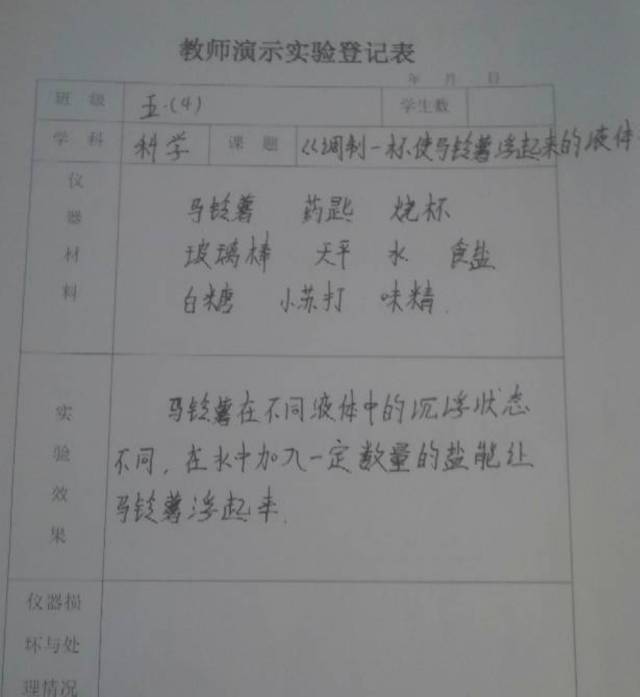 教师演示实验登记表
年 月 日
班 级 五.(4) 学生数
学 科 科学 课 题 《调制一杯使马铃薯浮起来的液体
仪器材料
马铃薯 药匙 烧杯
玻璃棒 天平 水 食盐
白糖 小苏打 味精.
实验效果
马铃薯在不同液体中的沉浮状态
不同，在水中加入一定数量的盐能让
马铃薯浮起来.
仪器损
坏与处
理情况